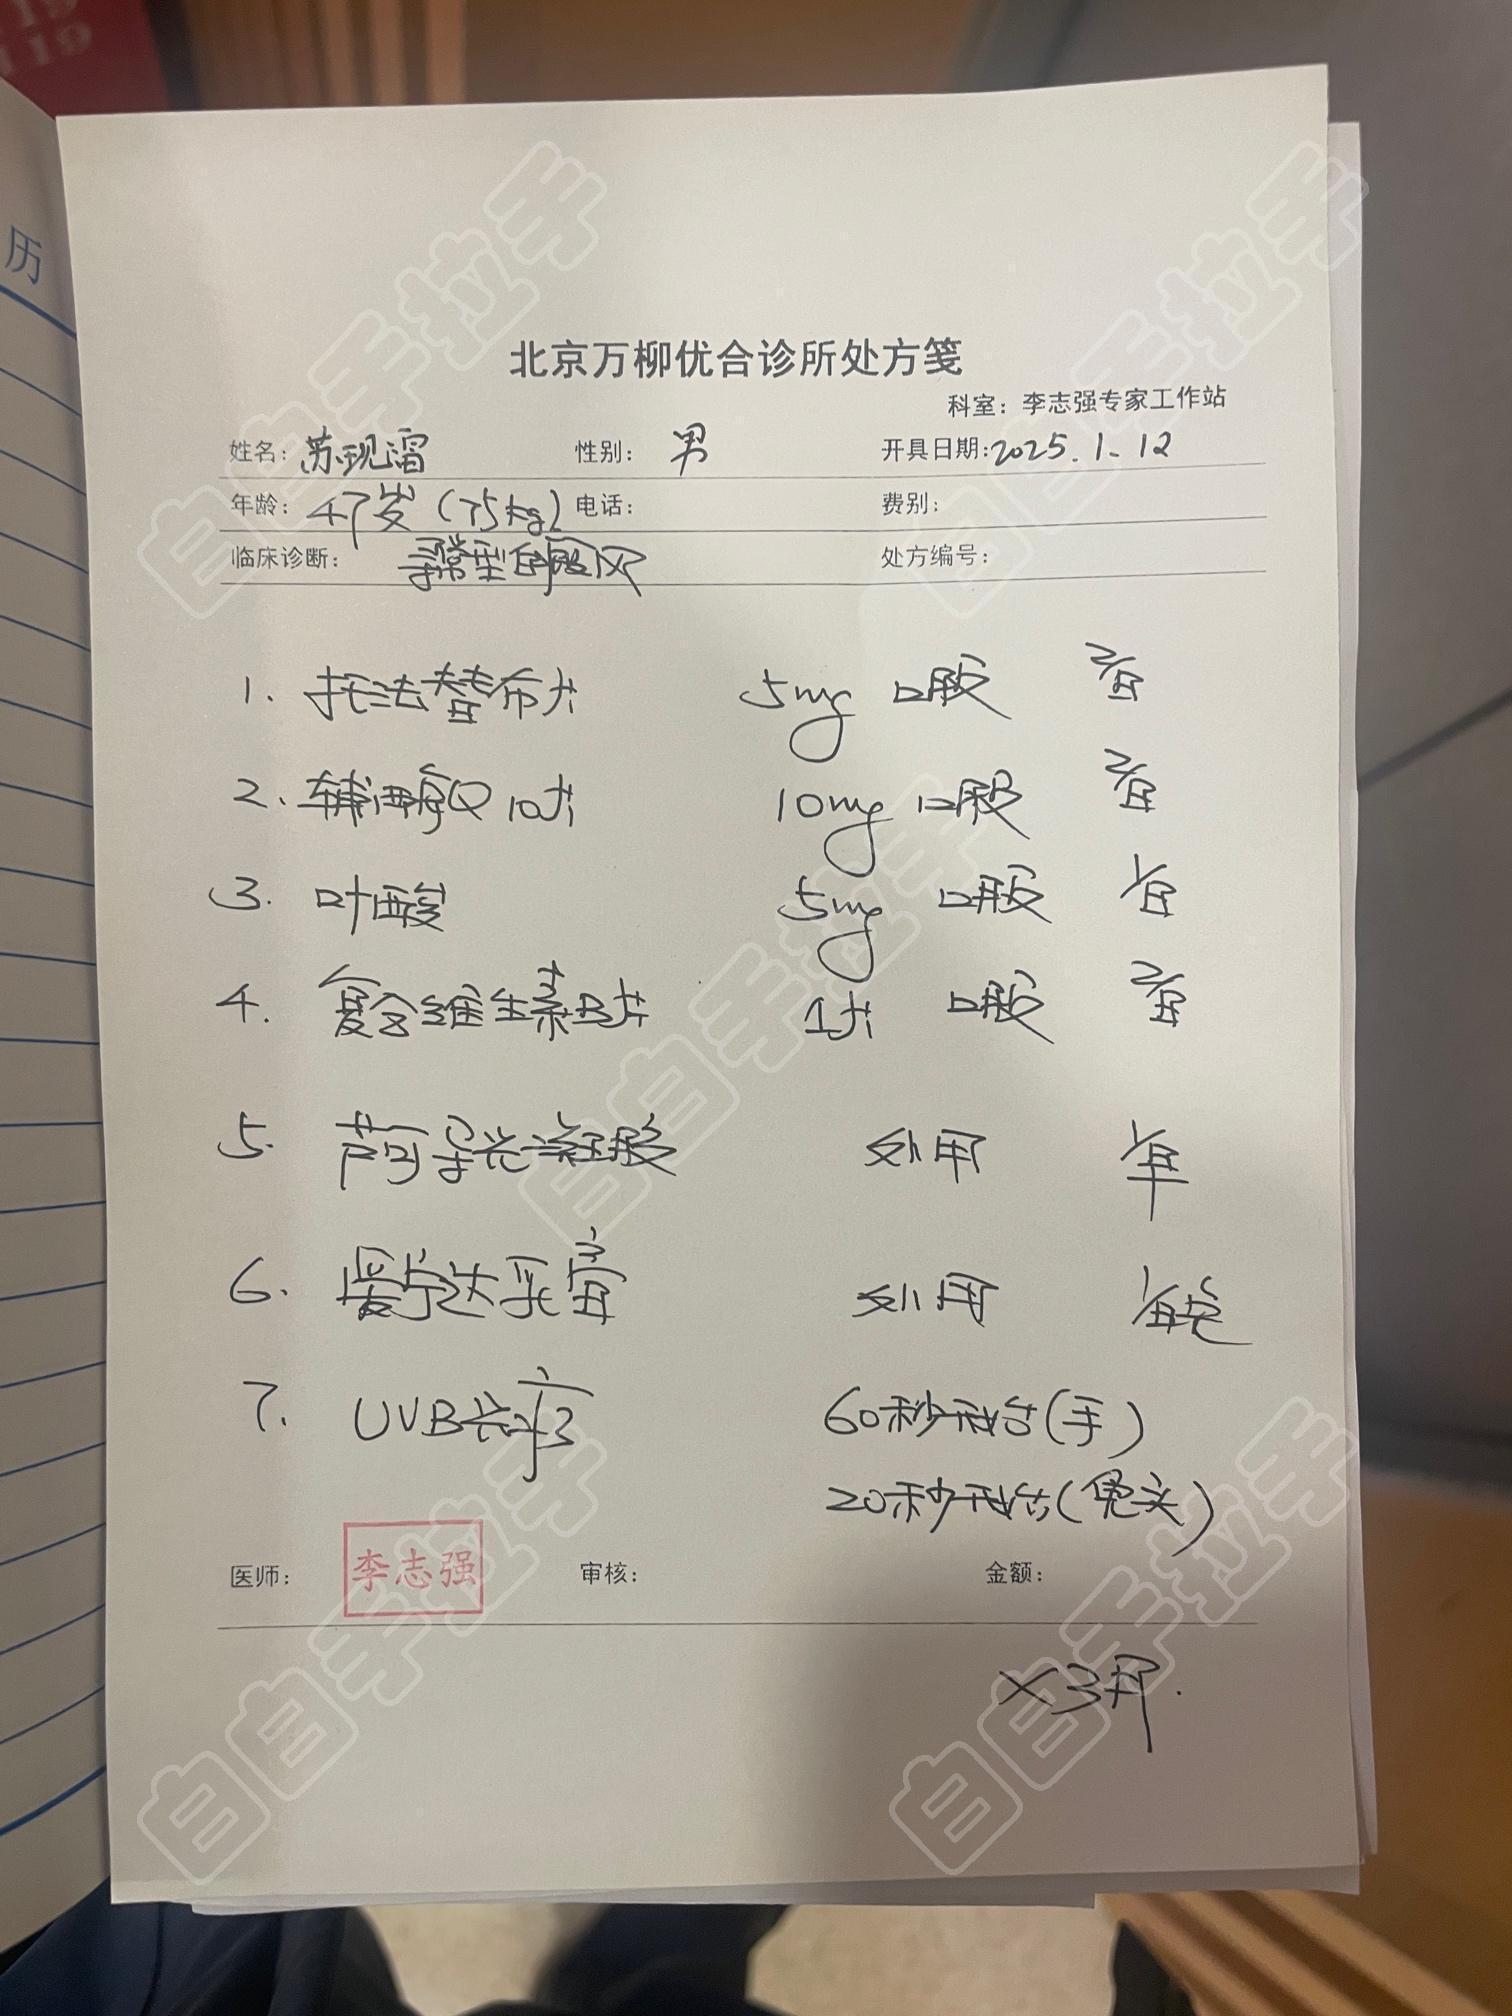 19
119
历
北京万柳优合诊所处方笺
科室：李志强专家工作站
姓名：苏现 性别：男 开具日期：2025.1.12
年龄：47岁（75kg） 电话： 费别：
临床诊断：寻常型白殿风 处方编号：
1. 托法替布片 5mg 口服 2/日
2. 辅酶Q10片 10mg 口服 2/日
3. 叶酸 5mg 口服 1/日
4. 复合维生素B片 1片 口服 2/日
5. 芦可 凝胶 外用 1/日早
6. 爱宁达乳膏 外用 1/日晚
7. UVB光疗 60秒 (手)
20秒 ( )
医师：李志强 审核： 金额：
×3月.
白白手拉手
白白手拉手
白白手拉手
白白手拉手
白白手拉手